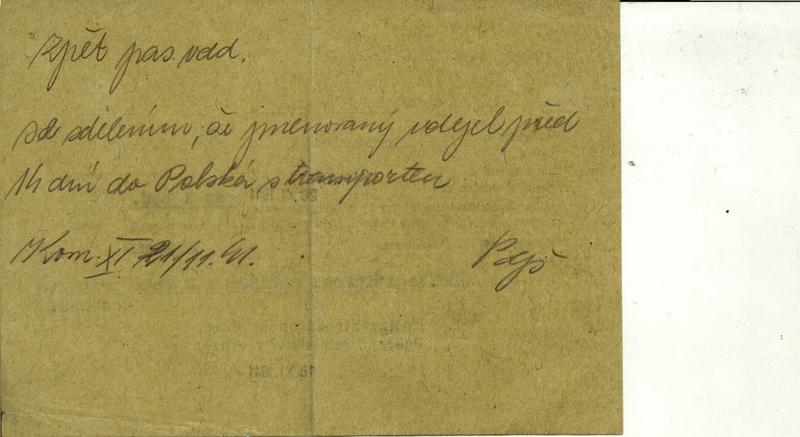 Zpět pas. odd.
se sdělením, že jmenovaný odejel před
14 dní do Polska s transportem
Kom. XI 21/11.41.